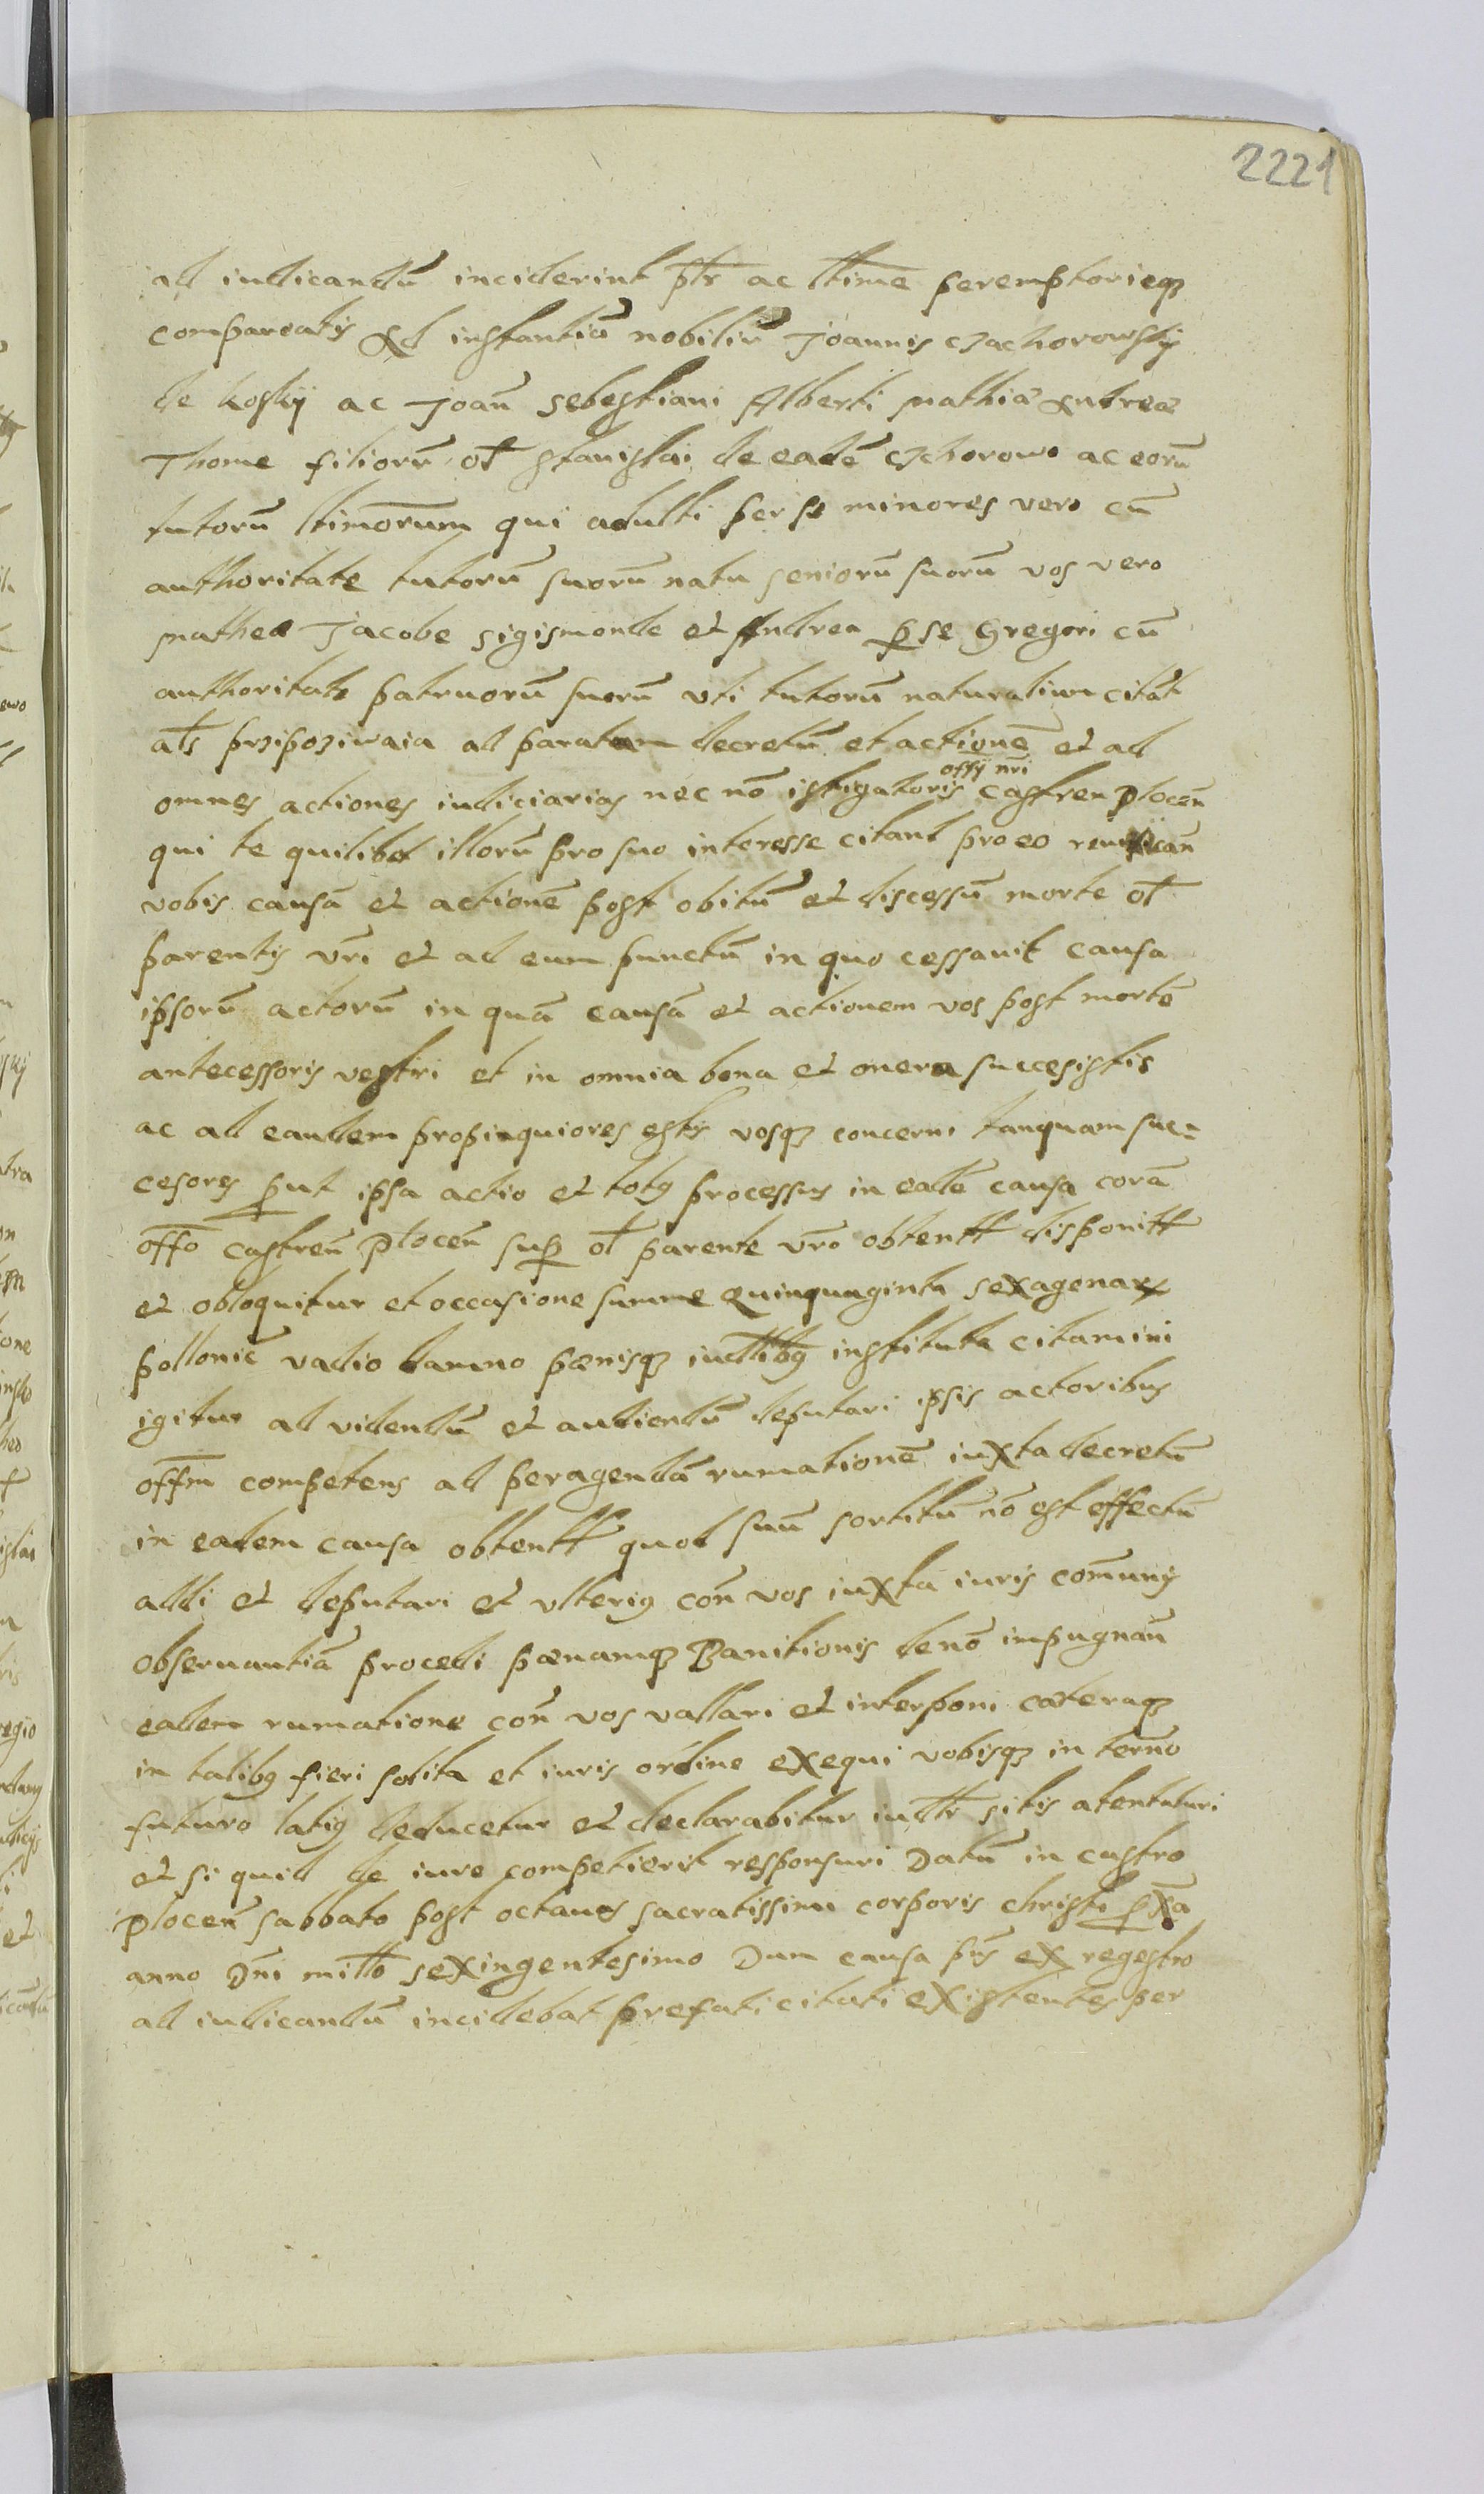 2221
ad iudicandū inciderint pltr ac ltime peremptorieq3
compareatis Ad instantiā nobiliū Joannis Czachorowskÿ
de koskÿ ac Joañ Sebestiani Alberti Mathiæ Andreæ
Thome filiorū ol Stanislai de eadē Czchorowo ac eorū
tutorū ltimorum qui adulti per se minores vero cū
authoritate tutorū suorū natu seniorū suorū vos vero
Mathea Jacobe Sigismonde et Andrea p se Gregori cū
authoritate patruorū suorū vti tutorū naturaliū citāt
als przipoziwaia ad paratam decretū et actionē et ad
offÿ nri
omnes actiones iudiciarias nec nō istigatoris castreñ Ploceñ
qui te quilibet illorū pro suo interesse citant pro eo
vobis causā et actionē post obitū et discessū morte ol
parentis vri et ad eum punctū in quo cessauit causa
ipsorū actorū in quā causā et actionem vos post mortē
antecessoris vestri et in omnia bona et onera succesistis
ac ad eandem propinquiores estis vosq3 concerni tanquam suc=
cesores put ipsa actio et totus processus in eadē causa corā
offo castreñ Ploceñ sup ol parente vro obtentt disponitt
et obloquitur et occasione summe Quinquaginta sexagenarx
pollonic̄ vadio damno pænisq3 iudltibus instituta citamini
igitur ad videndū et audiendū deputari ipsis actoribus
offm competens ad peragendā rumationē iuxta decretū
in eadem causa obtentt quod suū sortitū nō est effectū
addi et deputari et vlterius coñ vos iuxta iuris com̄unis
obseruantiā procedi pænamq3 Banitionis de nō impugnañ
eadem rumatione coñ vos vallari et interponi cæteraq3
in talibus fieri solita et iuris ordine exequi vobisq3 in termo
futuro latius deducetur et declarabitur iudltr sitis atentuturi
et si quid de iure competierit responsuri Datū in castro
Ploceñ sabbato post octauas sacratissimi corporis christi pxa
anno Dñi millo sexingentesimo Dum causa pns ex regestro
ad iudicandū incidebat prefati citati existentes per